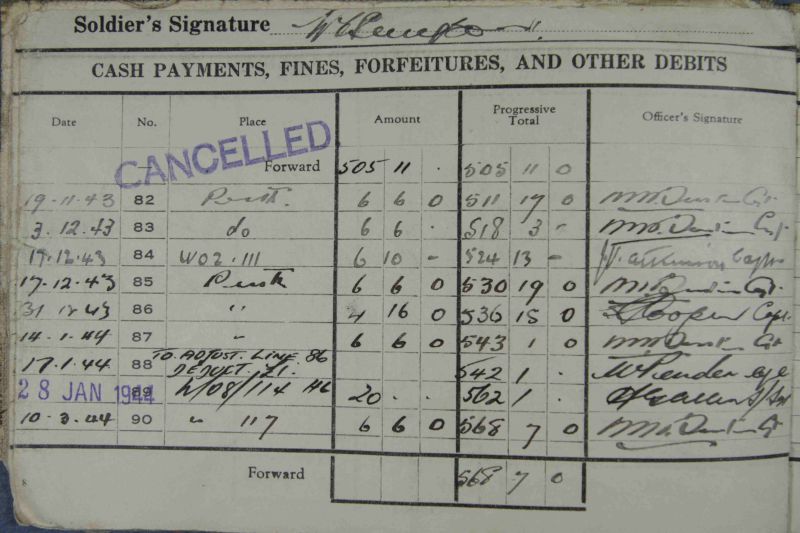 Soldier's Signature
CASH PAYMENTS, FINES, FORFEITURES, AND OTHER DEBITS
Date No. Place Amount Progressive Total Officer's Signature
CANCELLED
Forward 505 11 . 505 11 0
19.11.43 82 Perth. 6 6 0 511 17 0
3.12.43 83 do 6 6 . 518 3 -
17.12.43 84 W02.111 6 10 - 524 13 - Capt
17.12.43 85 Perth 6 6 0 530 19 0
31 12 43 86 " 4 16 0 536 15 0 Cooper Capt.
14.1.44 87 " 6 6 0 543 1 0
17.1.44 88 TO ADJUST. LINE 86
DEDUCT £1. 542 1 .
28 JAN 1944 89 4/08/114 20 . . 562 1 .
10.3.44 90 " 117 6 6 0 568 7 0
8 Forward 568 7 0